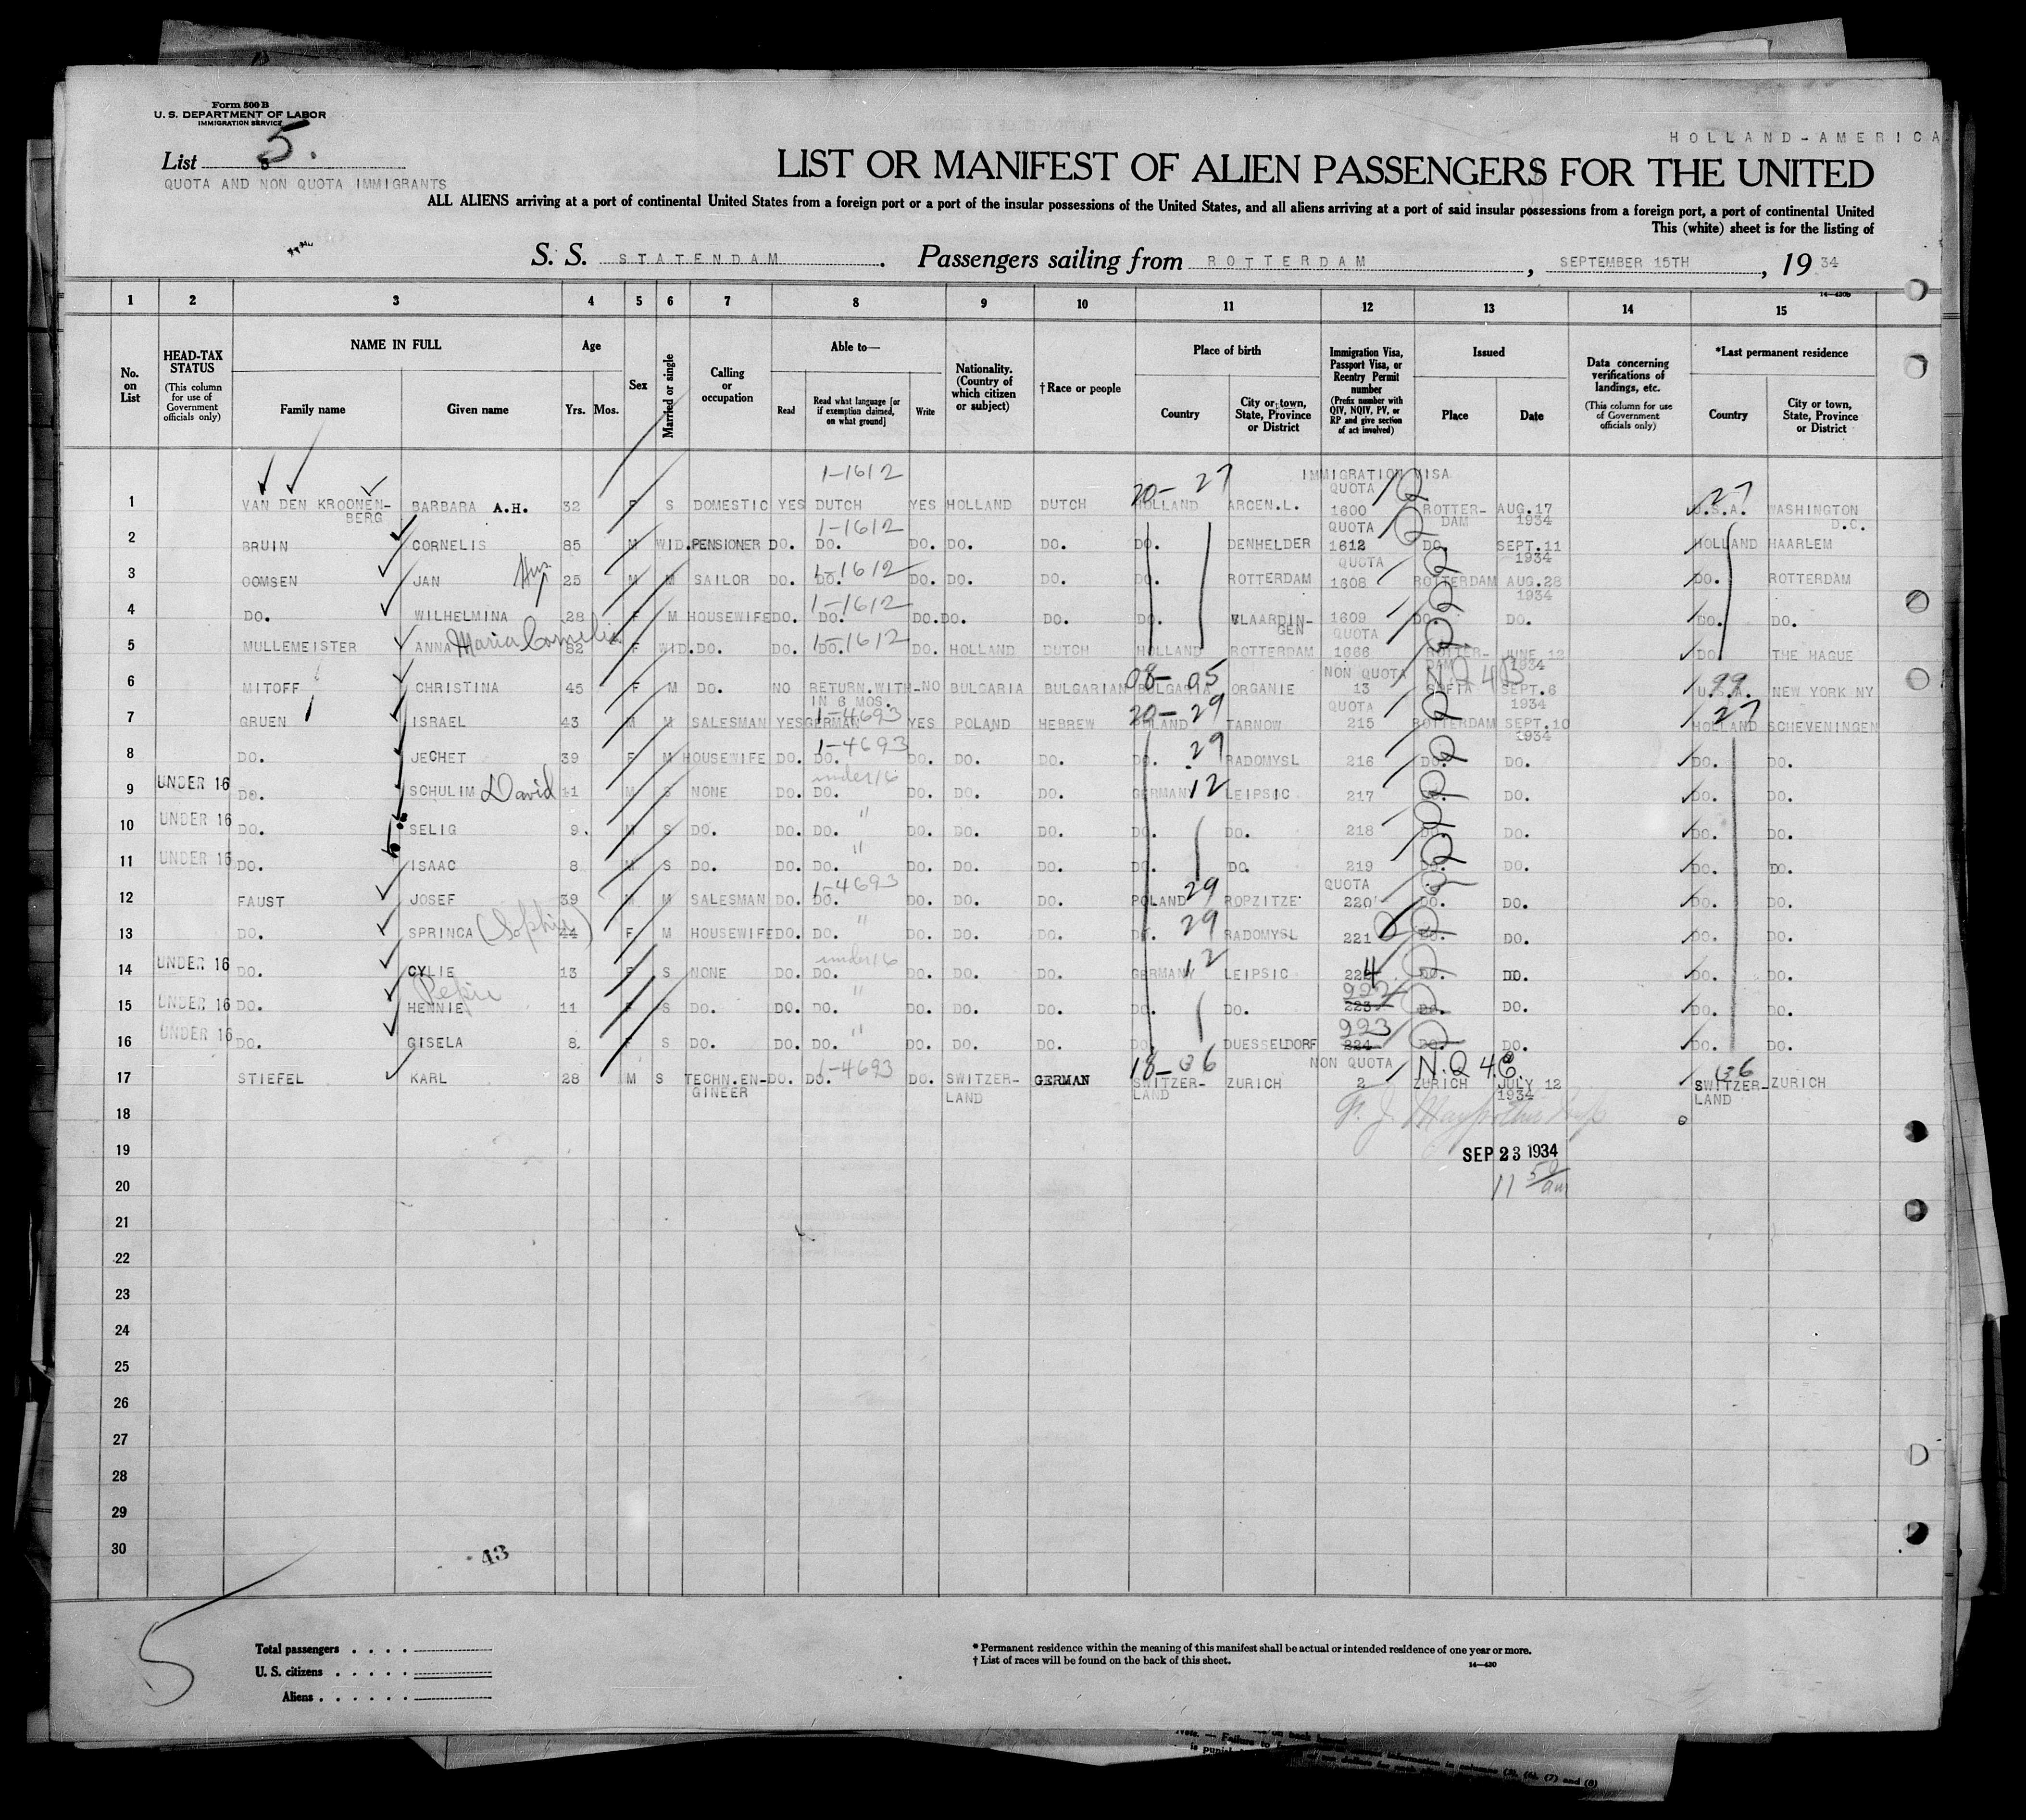 Form 500 B
U. S. DEPARTMENT OF LABOR
IMMIGRATION SERVICE
HOLLAND-AMERICA
List 5 5.
QUOTA AND NON QUOTA IMMIGRANTS
LIST OR MANIFEST OF ALIEN PASSENGERS FOR THE UNITED
ALL ALIENS arriving at a port of continental United States from a foreign port or a port of the insular possessions of the United States, and all aliens arriving at a port of said insular possessions from a foreign port, a port of continental United
This (white) sheet is for the listing of
S. S. STATENDAM. Passengers sailing from ROTTERDAM, SEPTEMBER 15TH, 19 34
14—430b
1 2 3 4 5 6 7 8 9 10 11 12 13 14 15
No. on List
HEAD-TAX STATUS (This column for use of Government officials only)
NAME IN FULL
Family name Given name
Age
Yrs. Mos.
Sex
Married or single
Calling or occupation
Able to—
Read
Read what language [or if exemption claimed, on what ground]
Write
Nationality. (Country of which citizen or subject)
† Race or people
Place of birth
Country
City or town, State, Province or District
Immigration Visa, Passport Visa, or Reentry Permit number
(Prefix number with QIV, NQIV, PV, or RP and give section of act involved)
Issued
Place Date
Data concerning verifications of landings, etc.
(This column for use of Government officials only)
*Last permanent residence
Country
City or town, State, Province or District
1-1612 20- 27 IMMIGRATION VISA QUOTA Q 27
1 VAN DEN KROONEN-BERG BARBARA A.H. 32 F S DOMESTIC YES DUTCH YES HOLLAND DUTCH HOLLAND ARCEN.L. 1600 ROTTER-DAM AUG.17 1934 U.S.A. WASHINGTON D.C.
1-1612 QUOTA Q
2 BRUIN CORNELIS 85 M WID. PENSIONER DO. DO. DO. DO. DO. DO. DENHELDER 1612 DO. SEPT.11 1934 HOLLAND HAARLEM
1-1612 QUOTA Q
3 OOMSEN JAN 25 M M SAILOR DO. DO. DO. DO. DO. DO. ROTTERDAM 1608 ROTTERDAM AUG.28 1934 DO. ROTTERDAM
1-1612 Q
4 DO. WILHELMINA 28 F M HOUSEWIFE DO. DO. DO. DO. DO. DO. VLAARDIN-GEN 1609 DO. DO. DO. DO.
1-1612 QUOTA Q
5 MULLEMEISTER ANNA Maria Cornelia 62 F WID. DO. DO. DO. DO. HOLLAND DUTCH HOLLAND ROTTERDAM 1666 ROTTER-DAM JUNE 12 1934 DO. THE HAGUE
08- 05 NON QUOTA N.Q 4B 99
6 MITOFF CHRISTINA 45 F M DO. NO RETURN.WITH-IN 6 MOS. NO BULGARIA BULGARIAN BULGARIA ORGANIE 13 SOFIA SEPT.6 1934 U.S.A. NEW YORK NY
1-4693 20- 29 QUOTA Q 27
7 GRUEN ISRAEL 43 M M SALESMAN YES GERMAN YES POLAND HEBREW POLAND TARNOW 215 ROTTERDAM SEPT.10 1934 HOLLAND SCHEVENINGEN
1-4693 29 Q
8 DO. JECHET 39 F M HOUSEWIFE DO. DO. DO. DO. DO. DO. RADOMYSL 216 DO. DO. DO. DO.
under 16 12 Q
9 UNDER 16 DO. SCHULIM David 11 M S NONE DO. DO. DO. DO. DO. GERMANY LEIPSIC 217 DO. DO. DO. DO.
"
10 UNDER 16 DO. SELIG 9. M S DO. DO. DO. DO. DO. DO. DO. DO. 218 DO. DO. DO. DO.
"
11 UNDER 16 DO. ISAAC 8 M S DO. DO. DO. DO. DO. DO. DO. DO. 219 DO. DO. DO. DO.
1-4693 29 QUOTA Q
12 FAUST JOSEF 39 M M SALESMAN DO. DO. DO. DO. DO. POLAND ROPZITZE 220 DO. DO. DO. DO.
" 29 Q
13 DO. SPRINCA (Sophie) 44 F M HOUSEWIFE DO. DO. DO. DO. DO. DO. RADOMYSL 221 DO. DO. DO. DO.
under 16 12 Q
14 UNDER 16 DO. CYLIE 13 F S NONE DO. DO. DO. DO. DO. GERMANY LEIPSIC 224 DO. DO. DO. DO.
Pepie " 222
15 UNDER 16 DO. HENNIE 11 F S DO. DO. DO. DO. DO. DO. DO. DO. 223 DO. DO. DO. DO.
" 223
16 UNDER 16 DO. GISELA 8. F S DO. DO. DO. DO. DO. DO. DO. DUESSELDORF 224 DO. DO. DO. DO.
1-4693 18- 36 NON QUOTA N.Q 4C. 36
17 STIEFEL KARL 28 M S TECHN.EN-GINEER DO. DO. DO. SWITZER-LAND GERMAN SWITZER-LAND ZURICH 2 ZURICH JULY 12 1934 SWITZER-LAND ZURICH
18
19 SEP 23 1934
20 11 50/am
21
22
23
24
25
26
27
28
29
30
43
5
Total passengers . . . .
U. S. citizens . . . . .
Aliens . . . . . .
* Permanent residence within the meaning of this manifest shall be actual or intended residence of one year or more.
† List of races will be found on the back of this sheet.
14—430